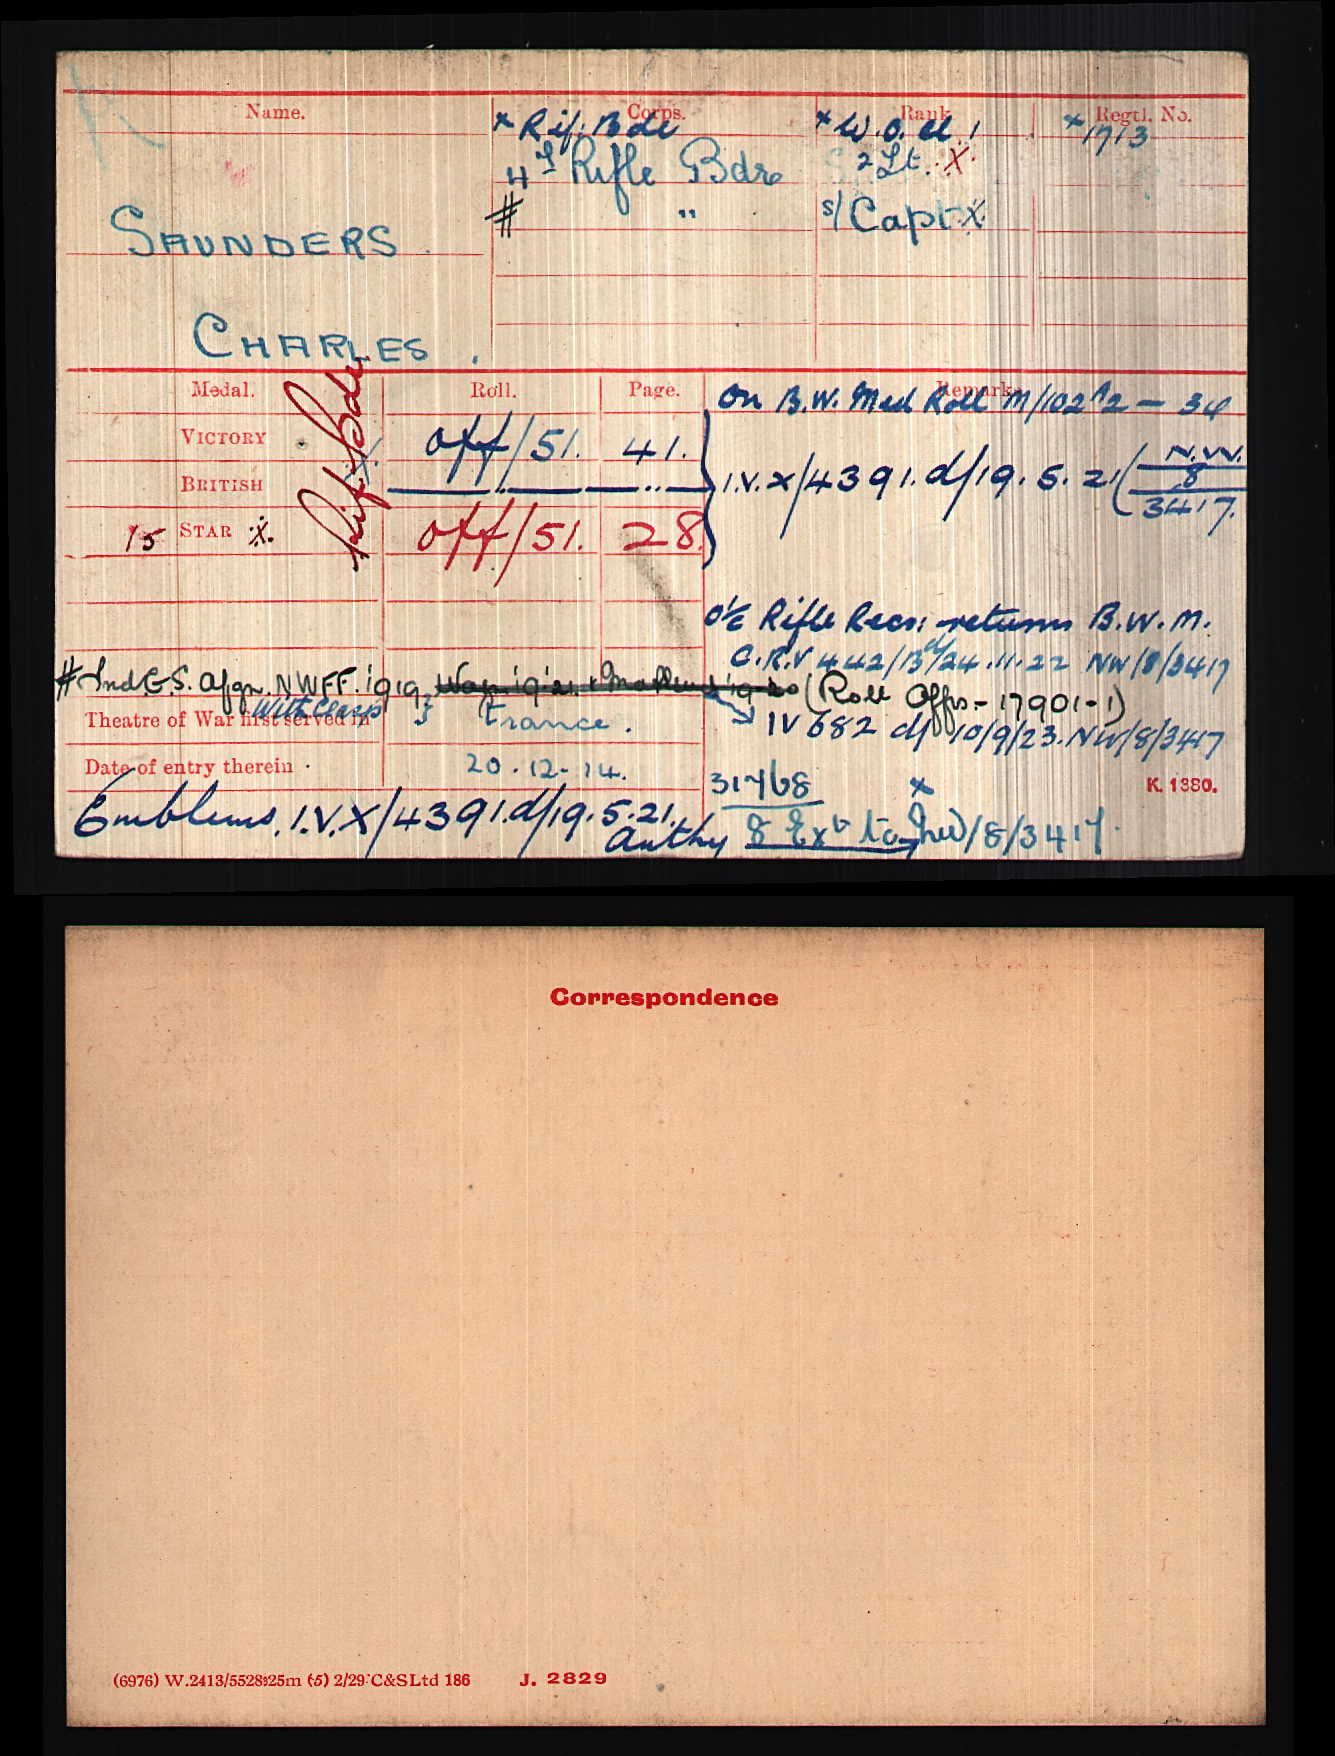 Name. Corps. Rank Regtl. No.
× Rif. Bde × W.O. Cl. 1 × 1713
4th Rifle Bde 2 Lt. X.
# " s/ Capt X
SAUNDERS.
CHARLES.
Medal. Roll. Page. Remarks
On B.W. Med Roll M/102 B2 - 34
VICTORY Off/51. 41.
BRITISH —..— —..—
I.V.X/4391.d/19.5.21 (N.W. 8 3417.
15 STAR X. Off/51. 28.
Rif. Bde
O i/c Rifle Recs: returns B.W.M.
C.R.V 442/B d/24.11.22 NW/8/3417
# Ind G.S. Afgn. NWFF. 1919, (Roll Offs - 17901-1)
With Clasp
Theatre of War first served in France.
IV 682 d/ 10/9/23. NW/8/3417
Date of entry therein 20.12.14.
31768 ×
K. 1380.
Emblems. I.V.X/4391.d/19.5.21.
Authy 8 Ext to NW/8/3417.
Correspondence
(6976) W.2413/5528 25m (5) 2/29 C&S Ltd 186 J. 2829